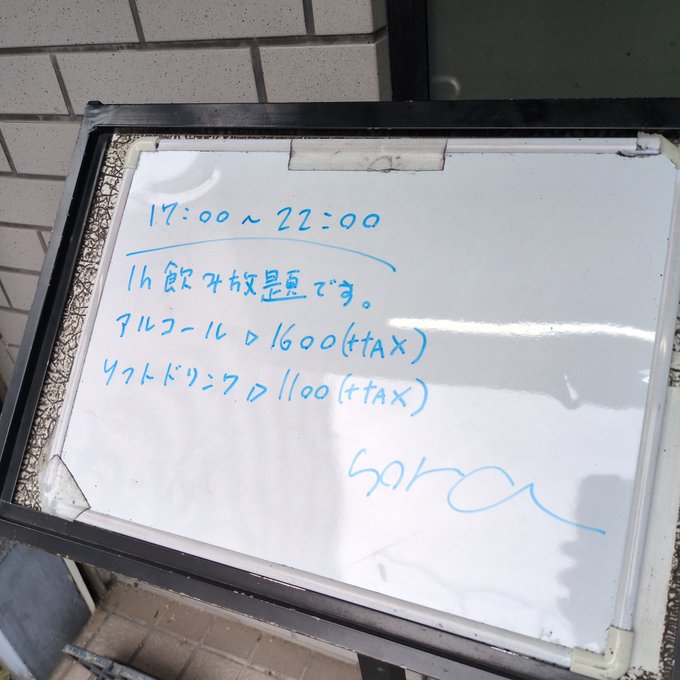 17:00~22:00
1h 飲み放題です。
アルコール▷1600(+tAX)
ソフトドリンク▷1100(+tAX)
sora